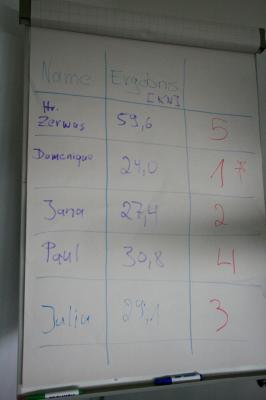 Name Ergebnis
[KN]
Hr.
Zerwas 59,6 5
Domenique 24,0 1*
Jana 27,4 2
Paul 30,8 4
Julia 29,1 3